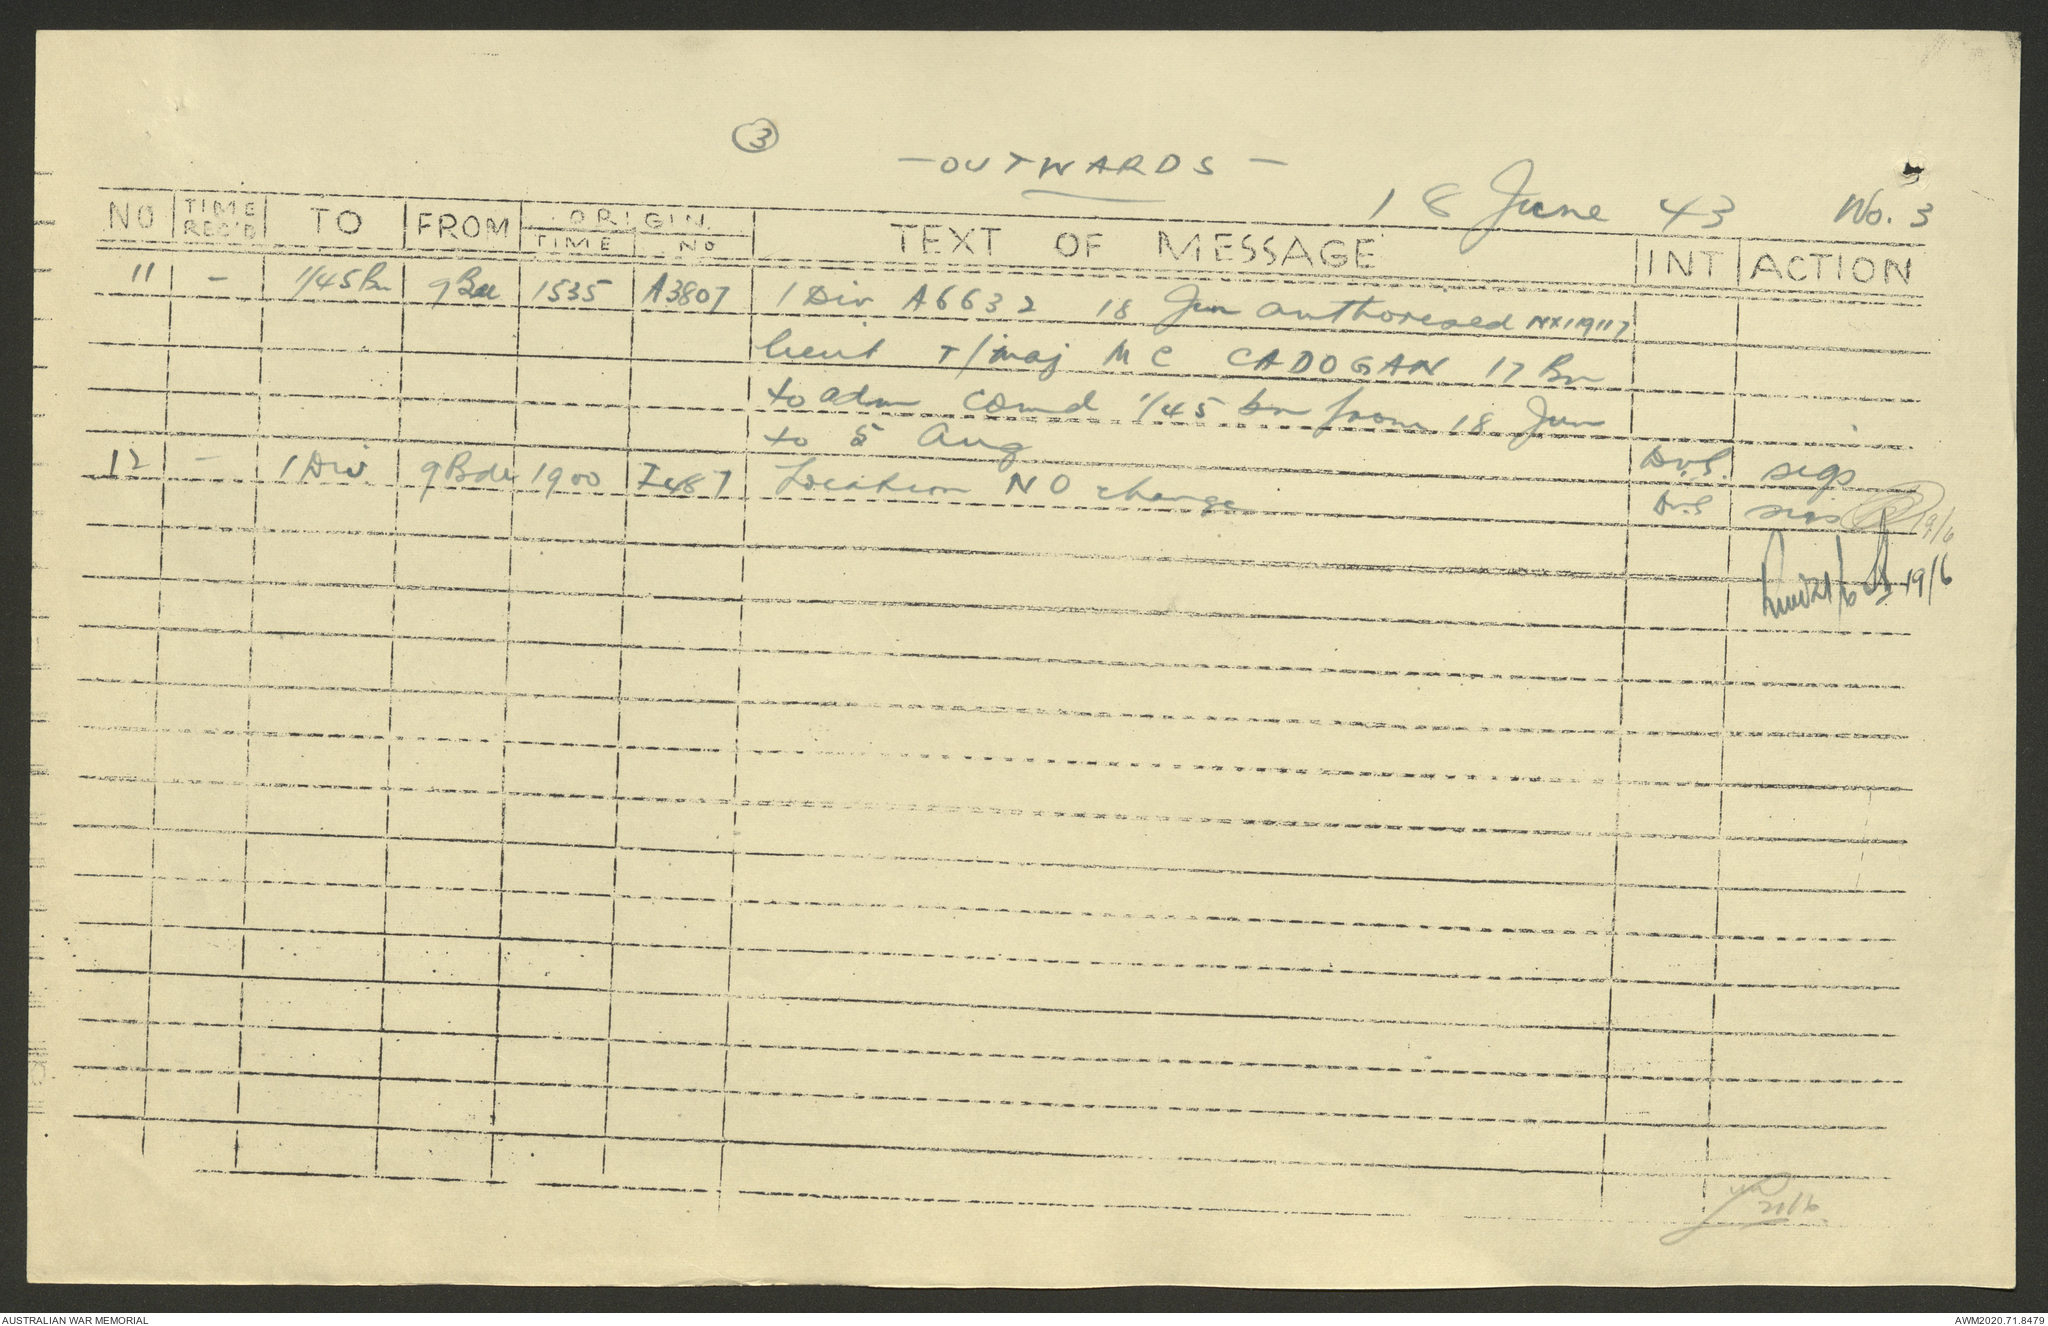 3
— OUTWARDS —
18 June 43 No. 3
NO | TIME REC'D | TO | FROM | ORIGIN TIME | NO | TEXT OF MESSAGE | INT | ACTION
11 | - | 1/45 Bn | 9 Bde | 1535 | A3807 | 1 Div A6632 18 Jun authorised NX119117
lieut T/Maj M C CADOGAN 17 Bn
to adm comd 1/45 bn from 18 Jun
to 5 Aug | D.v.S. | sigs
12 | - | 1 Div | 9 Bde | 1900 | I487 | Location NO change | D.v.S | sigs
19/6
21/6 19/6
21/6
AUSTRALIAN WAR MEMORIAL
AWM2020.71.8479